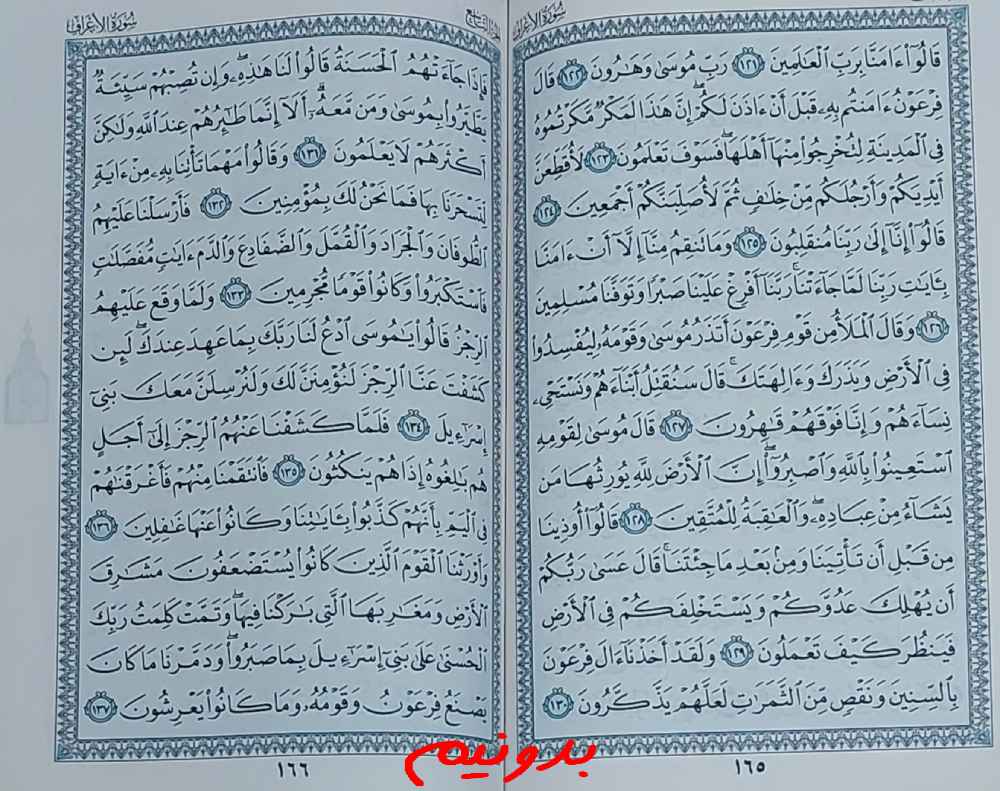 سُورَةُ الأَعْرَافِ
قَالُوٓا۟ ءَامَنَّا بِرَبِّ ٱلْعَٰلَمِينَ ١٢١ رَبِّ مُوسَىٰ وَهَٰرُونَ ١٢٢ قَالَ
فِرْعَوْنُ ءَامَنتُم بِهِۦ قَبْلَ أَنْ ءَاذَنَ لَكُمْ ۖ إِنَّ هَٰذَا لَمَكْرٌ مَّكَرْتُمُوهُ
فِى ٱلْمَدِينَةِ لِتُخْرِجُوا۟ مِنْهَآ أَهْلَهَا ۖ فَسَوْفَ تَعْلَمُونَ ١٢٣ لَأُقَطِّعَنَّ
أَيْدِيَكُمْ وَأَرْجُلَكُم مِّنْ خِلَٰفٍ ثُمَّ لَأُصَلِّبَنَّكُمْ أَجْمَعِينَ ١٢٤
قَالُوٓا۟ إِنَّآ إِلَىٰ رَبِّنَا مُنقَلِبُونَ ١٢٥ وَمَا تَنقِمُ مِنَّآ إِلَّآ أَنْ ءَامَنَّا
بِـَٔايَٰتِ رَبِّنَا لَمَّا جَآءَتْنَا ۚ رَبَّنَآ أَفْرِغْ عَلَيْنَا صَبْرًا وَتَوَفَّنَا مُسْلِمِينَ
١٢٦ وَقَالَ ٱلْمَلَأُ مِن قَوْمِ فِرْعَوْنَ أَتَذَرُ مُوسَىٰ وَقَوْمَهُۥ لِيُفْسِدُوا۟
فِى ٱلْأَرْضِ وَيَذَرَكَ وَءَالِهَتَكَ ۚ قَالَ سَنُقَتِّلُ أَبْنَآءَهُمْ وَنَسْتَحْىِۦ
نِسَآءَهُمْ وَإِنَّا فَوْقَهُمْ قَٰهِرُونَ ١٢٧ قَالَ مُوسَىٰ لِقَوْمِهِ
ٱسْتَعِينُوا۟ بِٱللَّهِ وَٱصْبِرُوٓا۟ ۖ إِنَّ ٱلْأَرْضَ لِلَّهِ يُورِثُهَا مَن
يَشَآءُ مِنْ عِبَادِهِۦ ۖ وَٱلْعَٰقِبَةُ لِلْمُتَّقِينَ ١٢٨ قَالُوٓا۟ أُوذِينَا
مِن قَبْلِ أَن تَأْتِيَنَا وَمِنۢ بَعْدِ مَا جِئْتَنَا ۚ قَالَ عَسَىٰ رَبُّكُمْ
أَن يُهْلِكَ عَدُوَّكُمْ وَيَسْتَخْلِفَكُمْ فِى ٱلْأَرْضِ
فَيَنظُرَ كَيْفَ تَعْمَلُونَ ١٢٩ وَلَقَدْ أَخَذْنَآ ءَالَ فِرْعَوْنَ
بِٱلسِّنِينَ وَنَقْصٍ مِّنَ ٱلثَّمَرَٰتِ لَعَلَّهُمْ يَذَّكَّرُونَ ١٣٠
١٦٥
سُورَةُ الأَعْرَافِ
فَإِذَا جَآءَتْهُمُ ٱلْحَسَنَةُ قَالُوا۟ لَنَا هَٰذِهِۦ ۖ وَإِن تُصِبْهُمْ سَيِّئَةٌ
يَطَّيَّرُوا۟ بِمُوسَىٰ وَمَن مَّعَهُۥٓ ۗ أَلَآ إِنَّمَا طَٰٓئِرُهُمْ عِندَ ٱللَّهِ وَلَٰكِنَّ
أَكْثَرَهُمْ لَا يَعْلَمُونَ ١٣١ وَقَالُوا۟ مَهْمَا تَأْتِنَا بِهِۦ مِنْ ءَايَةٍ
لِّتَسْحَرَنَا بِهَا فَمَا نَحْنُ لَكَ بِمُؤْمِنِينَ ١٣٢ فَأَرْسَلْنَا عَلَيْهِمُ
ٱلطُّوفَانَ وَٱلْجَرَادَ وَٱلْقُمَّلَ وَٱلضَّفَادِعَ وَٱلدَّمَ ءَايَٰتٍ مُّفَصَّلَٰتٍ
فَٱسْتَكْبَرُوا۟ وَكَانُوا۟ قَوْمًا مُّجْرِمِينَ ١٣٣ وَلَمَّا وَقَعَ عَلَيْهِمُ
ٱلرِّجْزُ قَالُوا۟ يَٰمُوسَى ٱدْعُ لَنَا رَبَّكَ بِمَا عَهِدَ عِندَكَ ۖ لَئِن
كَشَفْتَ عَنَّا ٱلرِّجْزَ لَنُؤْمِنَنَّ لَكَ وَلَنُرْسِلَنَّ مَعَكَ بَنِىٓ
إِسْرَٰٓءِيلَ ١٣٤ فَلَمَّا كَشَفْنَا عَنْهُمُ ٱلرِّجْزَ إِلَىٰٓ أَجَلٍ
هُم بَٰلِغُوهُ إِذَا هُمْ يَنكُثُونَ ١٣٥ فَٱنتَقَمْنَا مِنْهُمْ فَأَغْرَقْنَٰهُمْ
فِى ٱلْيَمِّ بِأَنَّهُمْ كَذَّبُوا۟ بِـَٔايَٰتِنَا وَكَانُوا۟ عَنْهَا غَٰفِلِينَ ١٣٦
وَأَوْرَثْنَا ٱلْقَوْمَ ٱلَّذِينَ كَانُوا۟ يُسْتَضْعَفُونَ مَشَٰرِقَ
ٱلْأَرْضِ وَمَغَٰرِبَهَا ٱلَّتِى بَٰرَكْنَا فِيهَا ۖ وَتَمَّتْ كَلِمَتُ رَبِّكَ
ٱلْحُسْنَىٰ عَلَىٰ بَنِىٓ إِسْرَٰٓءِيلَ بِمَا صَبَرُوا۟ ۖ وَدَمَّرْنَا مَا كَانَ
يَصْنَعُ فِرْعَوْنُ وَقَوْمُهُۥ وَمَا كَانُوا۟ يَعْرِشُونَ ١٣٧
١٦٦
بدونیم